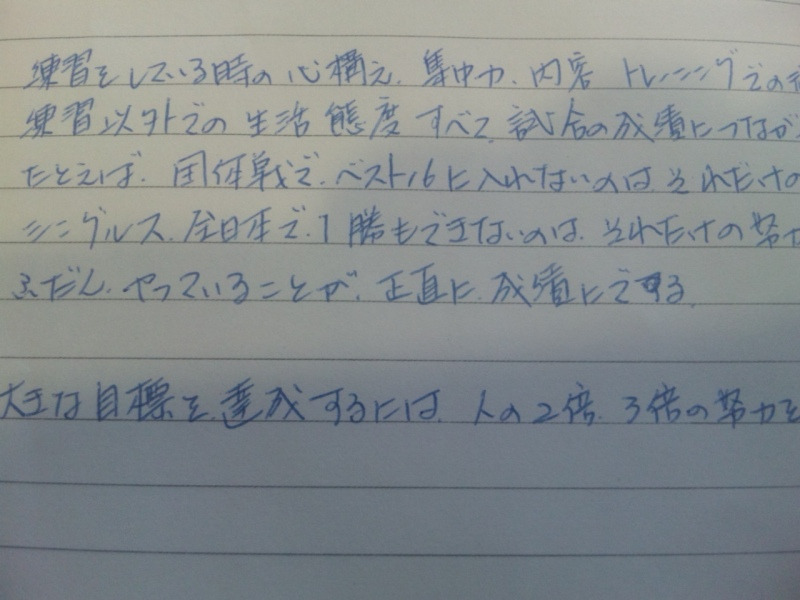 練習をしている時の心構え、集中力、内容 トレーニングでの
練習以外での生活態度すべて、試合の成績につなが
たとえば、団体戦で、ベスト16に入れないのは、それだけの
シングルス、全日本で、1勝もできないのは、それだけの努力
ふだん、やっていることが、正直に、成績にでる。
大きな目標を、達成するには、人の2倍、3倍の努力を